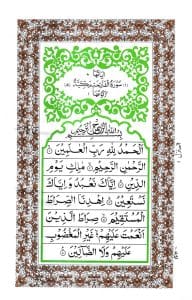 اٰیاتها
سُوْرَةُ الْفَاتِحَةِ مَكِّيَّةٌ
رکوعها
بِسْمِ اللهِ الرَّحْمٰنِ الرَّحِيْمِ
اَلْحَمْدُ لِلّٰهِ رَبِّ الْعٰلَمِيْنَ
الرَّحْمٰنِ الرَّحِيْمِ مٰلِكِ يَوْمِ
الدِّيْنِ اِيَّاكَ نَعْبُدُ وَاِيَّاكَ
نَسْتَعِيْنُ اِهْدِنَا الصِّرَاطَ
الْمُسْتَقِيْمَ صِرَاطَ الَّذِيْنَ
اَنْعَمْتَ عَلَيْهِمْ غَيْرِ الْمَغْضُوْبِ
عَلَيْهِمْ وَلَا الضَّآلِّيْنَ